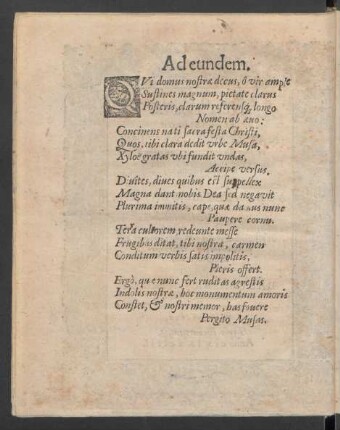 Ad eundem.
QVi domus nostræ decus, ô vir ample
Sustines magnum, pietate clarus
Posteris, clarum referensq, longo
Nomen ab æuo:
Concinens nati sacra festa Christi,
Quos, tibi clara dedit vrbe Musa,
Xylos gratas vbi fundit vndas,
Accipe versus.
Diuites, diues quibus est suppellex
Magna dant nobis Dea sed negavit
Plurima immitis, cape, quæ damus nunc
Paupere cornu.
Terra cultorem redeunte messe
Frugibus ditat, tibi nostra, carmen
Conditum verbis satis impolitis,
Pieris offert.
Ergò, quæ nunc fert ruditas agrestis
Indolis nostræ, hoc monumentum amoris
Constet, & nostri memor, has fouere
Pergito Musas.